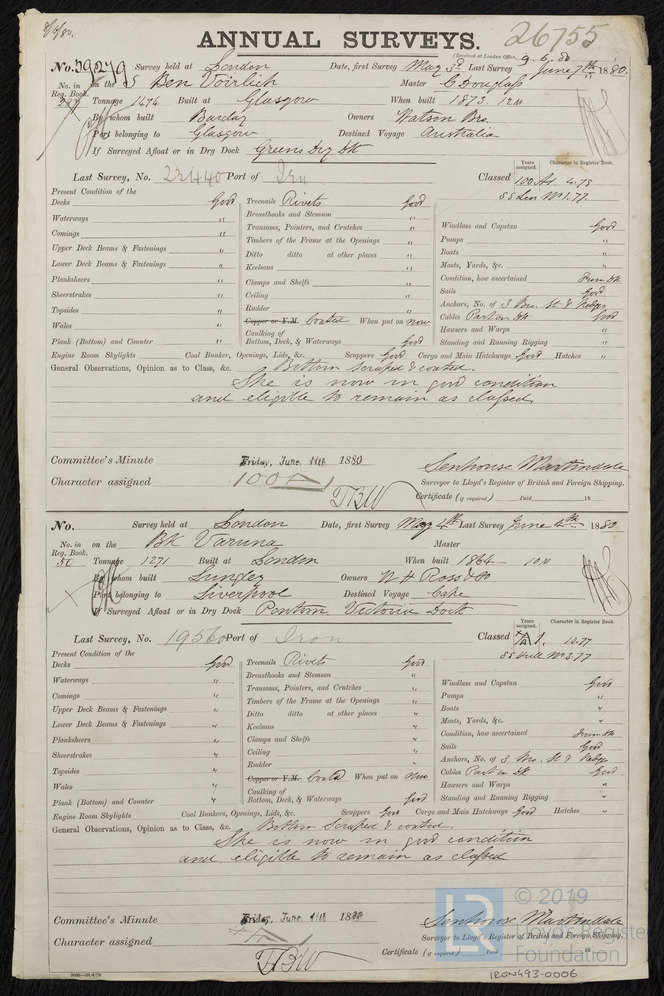 8/6/80
ANNUAL SURVEYS.
26755
(Received at London Office, 9.6.80
No. 39279 Survey held at London Date, first Survey May 3rd Last Survey June 7th 1880.
No. in Reg. Book. on the S Ben Voirlich Master C Douglass
Tonnage 1474 Built at Glasgow When built 1873. 12m
By whom built Barclay Owners Watson Bro.
Port belonging to Glasgow Destined Voyage Australia
If Surveyed Afloat or in Dry Dock Greens Dry Dk
Last Survey, No. 23440 Port of Iron Classed
Years assigned. Character in Register Book.
100A1. 4.75
SS Lon No1.77.
Present Condition of the
Decks Good
Waterways "
Comings "
Upper Deck Beams & Fastenings "
Lower Deck Beams & Fastenings "
Planksheers "
Sheerstrakes "
Topsides "
Wales "
Plank (Bottom) and Counter "
Treenails Rivets Good
Breasthooks and Stemson "
Transoms, Pointers, and Crutches "
Timbers of the Frame at the Openings "
Ditto ditto at other places "
Keelsons "
Clamps and Shelfs "
Ceiling "
Rudder "
Copper or Y.M. Coated When put on now
Caulking of
Bottom, Deck, & Waterways Good
Windlass and Capstan Good
Pumps "
Boats "
Masts, Yards, &c. "
Condition, how ascertained From Dk
Sails Good
Anchors, No. of 3 Bro. St & Kedges
Cables Part on Dk Good
Hawsers and Warps "
Standing and Running Rigging "
Engine Room Skylights Coal Bunker, Openings, Lids, &c. Scuppers Good Cargo and Main Hatchways Good Hatches "
General Observations, Opinion as to Class, &c. Bottom Scraped & coated.
She is now in good condition
and eligible to remain as classed.
Committee's Minute Friday, June 11th 1880
Character assigned 100A
Senhouse Martindale
Surveyor to Lloyd's Register of British and Foreign Shipping.
TBW
Certificate (if required) Paid 18
No. Survey held at London Date, first Survey May 4th Last Survey June 4th 1880
No. in Reg. Book. on the Bk Varuna Master
50 Tonnage 1271 Built at London When built 1864 10m
By whom built Lungley Owners W H Ross & Co
Port belonging to Liverpool Destined Voyage Cape
If Surveyed Afloat or in Dry Dock Pontoon Victoria Dock
Last Survey, No. 19560 Port of Iron Classed
Years assigned. Character in Register Book.
A 1. 12.77
Present Condition of the
Decks Good
Waterways "
Comings "
Upper Deck Beams & Fastenings "
Lower Deck Beams & Fastenings "
Planksheers "
Sheerstrakes "
Topsides "
Wales "
Plank (Bottom) and Counter "
Treenails Rivets Good
Breasthooks and Stemson "
Transoms, Pointers, and Crutches "
Timbers of the Frame at the Openings "
Ditto ditto at other places "
Keelsons "
Clamps and Shelfs "
Ceiling "
Rudder "
Copper or Y.M. Coated When put on Now
Caulking of
Bottom, Deck, & Waterways Good
Windlass and Capstan Good
Pumps "
Boats "
Masts, Yards, &c. "
Condition, how ascertained From Dk
Sails Good
Anchors, No. of 3 Bro. St & Kedges
Cables Part on Dk Good
Hawsers and Warps "
Standing and Running Rigging "
Engine Room Skylights Coal Bunkers, Openings, Lids, &c. Scuppers Good Cargo and Main Hatchways Good Hatches "
General Observations, Opinion as to Class, &c. Bottom Scraped & coated.
She is now in good condition
and eligible to remain as classed
Committee's Minute Friday, June 11th 1880
Character assigned
Senhouse Martindale
Surveyor to Lloyd's Register of British and Foreign Shipping.
TBW
Certificate (if required) Paid 18
IRON493-0006
LR
© 2019
Lloyd's Register
Foundation